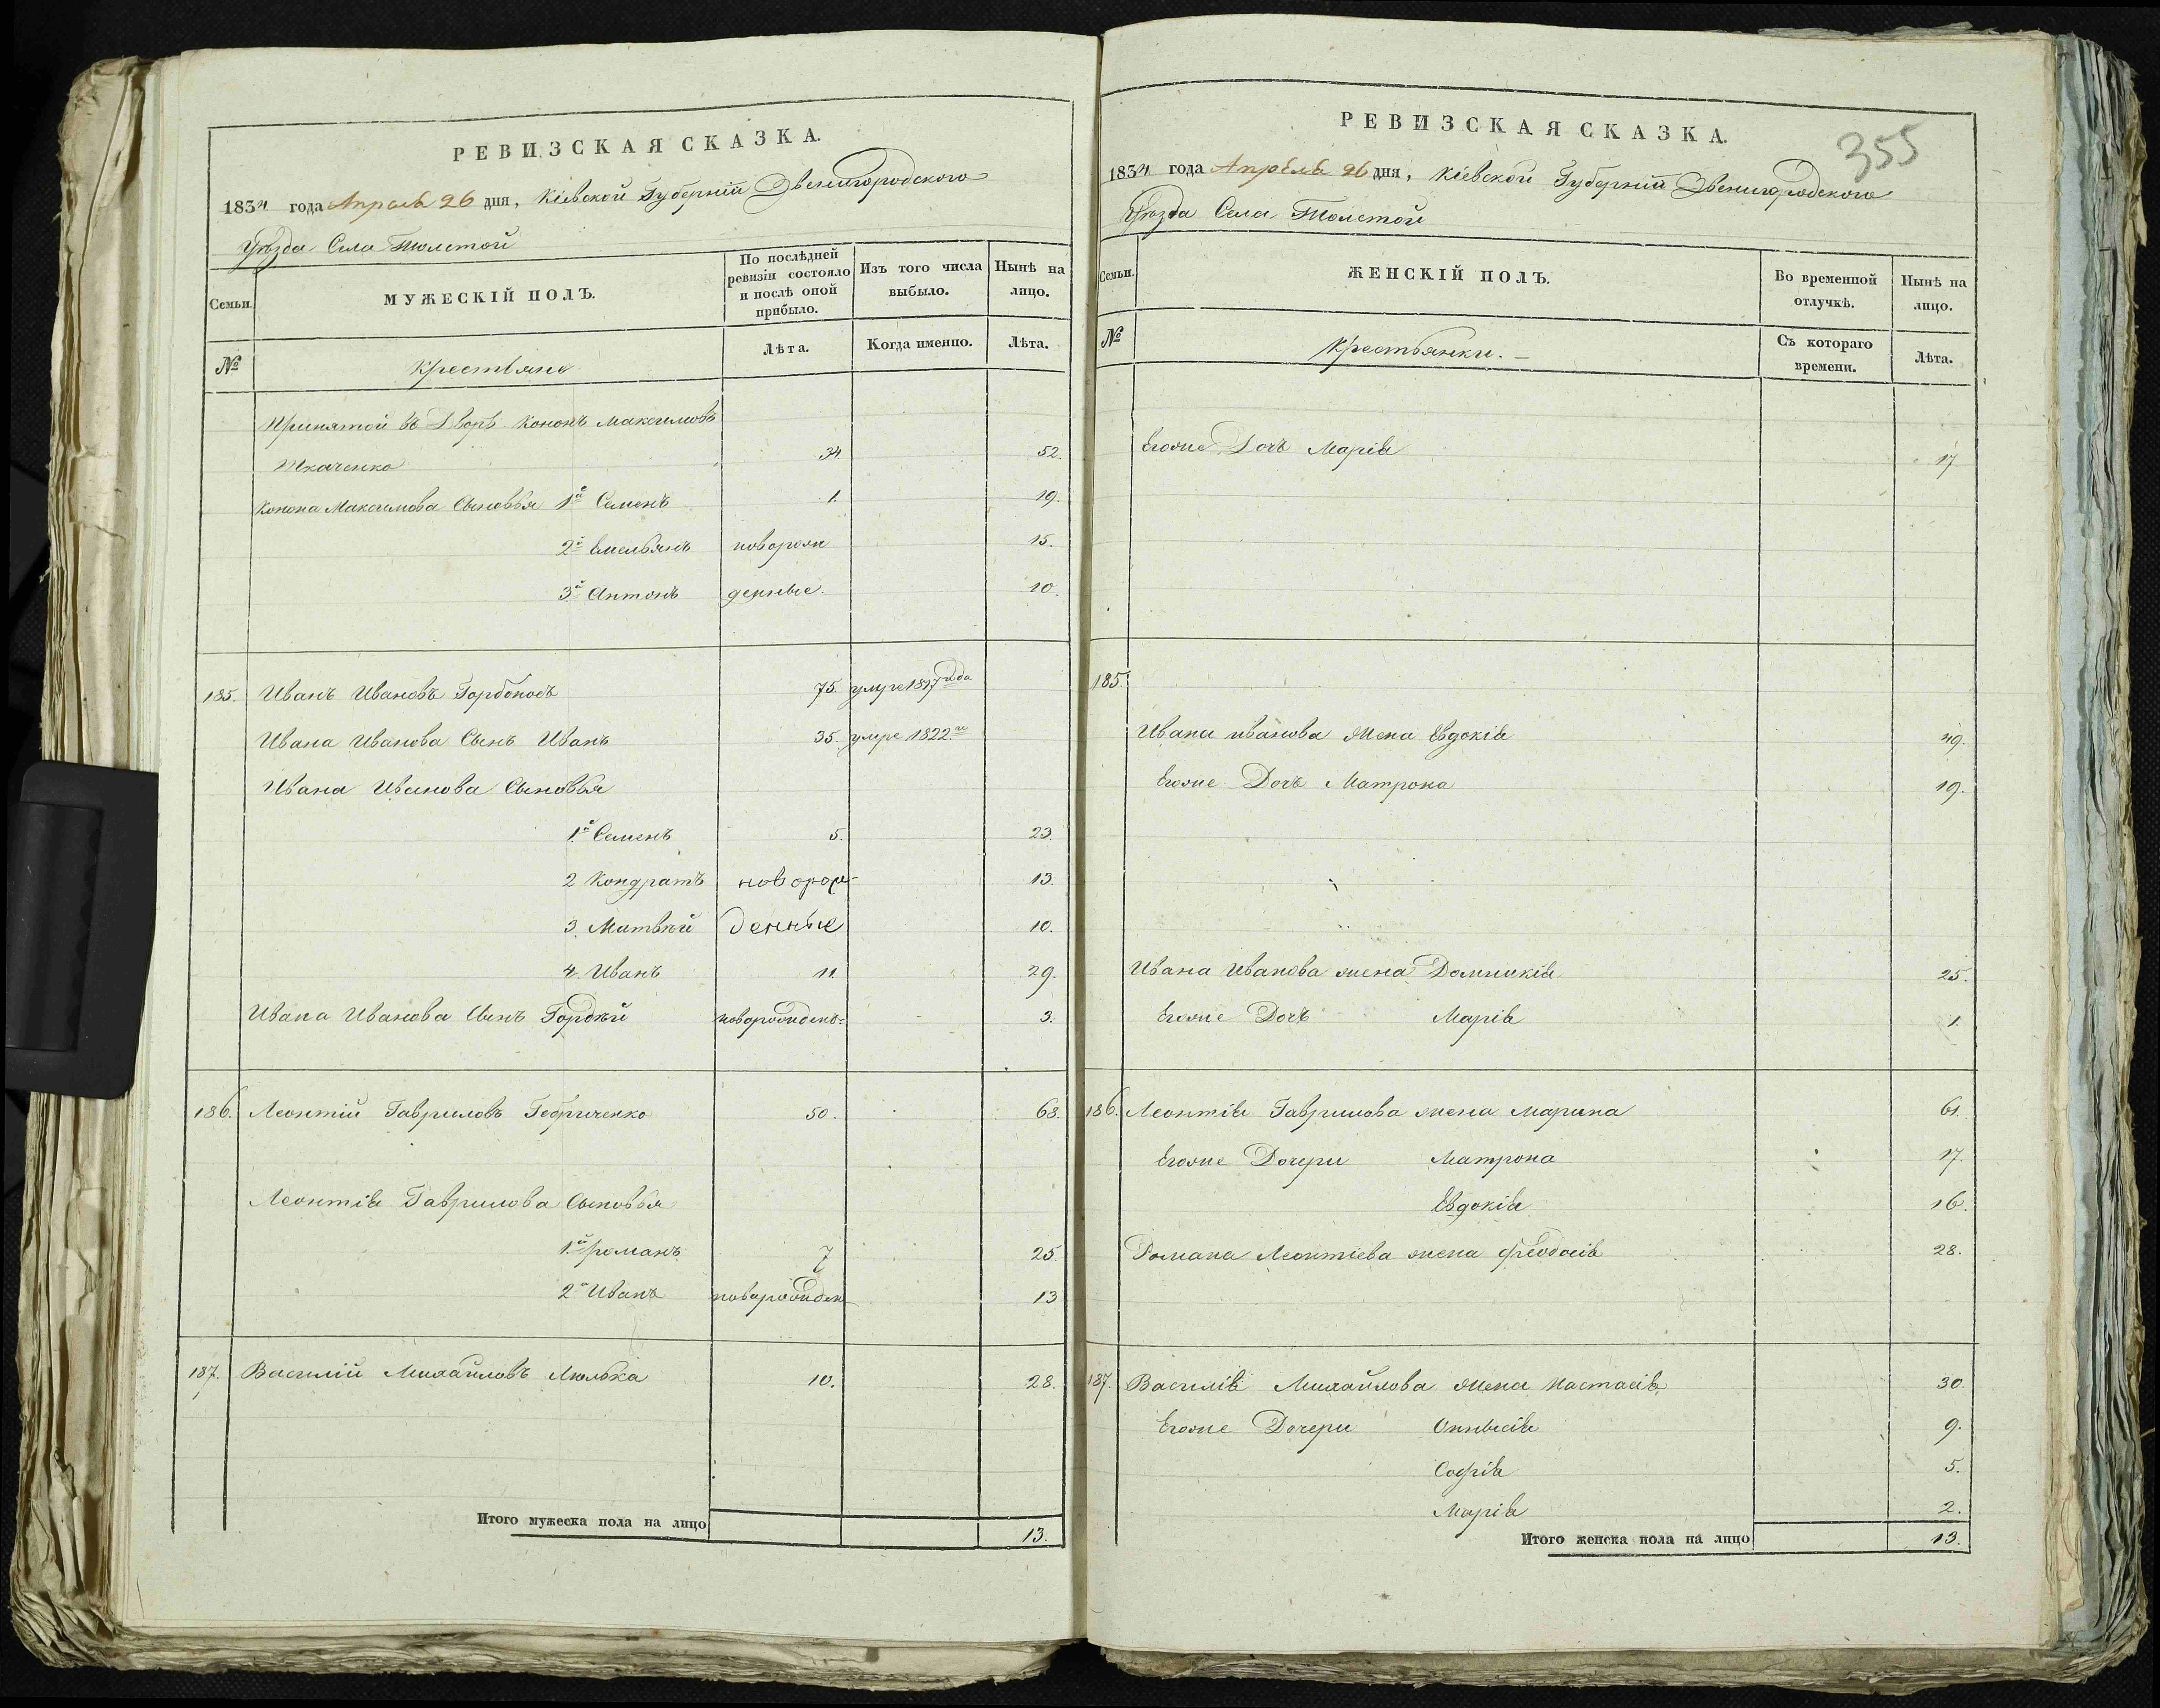 РЕВИЗСКАЯ СКАЗКА.
1834 года Апреля 26 дня, Кіевской Губерніи Звенигородского
Уѣзда Села Толстой
Семьи.
МУЖЕСКІЙ ПОЛЪ.
По послѣдней ревизіи состояло и послѣ оной прибыло.
Изъ того числа выбыло.
Нынѣ на лицо.
№
Крестьяне
Лѣта.
Когда именно.
Лѣта.
Принятой въ Дворъ Кононъ Максимовъ
Ткаченко 34. 52.
Конона Максимова Сыновья 1й Семенъ 1. 19.
2й Емельянъноворож 15.
3й Антонъ денные. 10.
185. Иванъ Ивановъ Горбоносъ 75. умре 1817 года
Ивана Иванова Сынъ Иванъ 35. умре 1822 го
Ивана Иванова Сыновья
1й Семенъ 5. 23.
2 Кондратъ новорож- 13.
3. Матвѣй денные 10.
4. Иванъ 11. 29.
Ивана Иванова Сынъ Гордѣй новорожден: 3.
186. Леонтій Гавриловъ 50. 68.
Леонтія Гаврилова Сыновья
1й Романъ 7 25.
2й Иванъ новорожден 13
187. Василій Михайловъ Люлька 10. 28.
Итого мужеска пола на лицо 13.
355
РЕВИЗСКАЯ СКАЗКА.
1834 года Апреля 26 дня, Кіевской Губерніи Звенигородского
Уѣзда Села Толстой
Семьи.
ЖЕНСКІЙ ПОЛЪ.
Во временной отлучкѣ.
Нынѣ на лицо.
№
Крестьянки. —
Съ котораго времени.
Лѣта.
Егоже Дочь Марія 17
185.
Ивана Иванова жена Евдокія 49.
Егоже Дочь Матрона 19.
Ивана Иванова жена Домникія 25.
Егоже Дочь Марія 1.
186. Леонтія Гаврилова жена Марина 61.
Егоже Дочери Матрона 17.
Евдокія 16.
Романа Леонтіева жена Феодосія 28.
187. Василія Михайлова жена Настасія 30.
Егоже Дочери 9.
Софія 5.
Марія 2.
Итого женска пола на лицо 13.